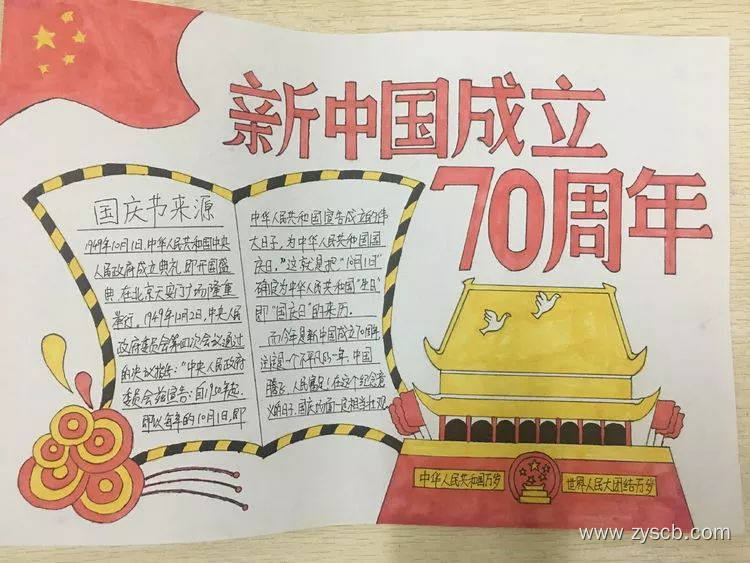 新中国成立
70周年
国庆节来源
1949年10月1日,中华人民共和国中央
人民政府成立典礼,即开国盛
典,在北京天安门广场隆重
举行。1949年12月2日,中央人民
政府委员会第四次会议通过
的决议指出:"中央人民政府
委员会兹宣告:自1950年起,
即以每年的10月1日,即
中华人民共和国宣告成立的伟
大日子,为中华人民共和国国
庆日。"这就是把"10月1日"
确定为中华人民共和国"生日"
即"国庆日"的来历。
而今年是新中国成立70周年
注定是一个不平凡的一年,中国
腾飞,人民富足!在这个纪念意
义的日子,国庆的
中华人民共和国万岁
世界人民大团结万岁
www.zyscb.com